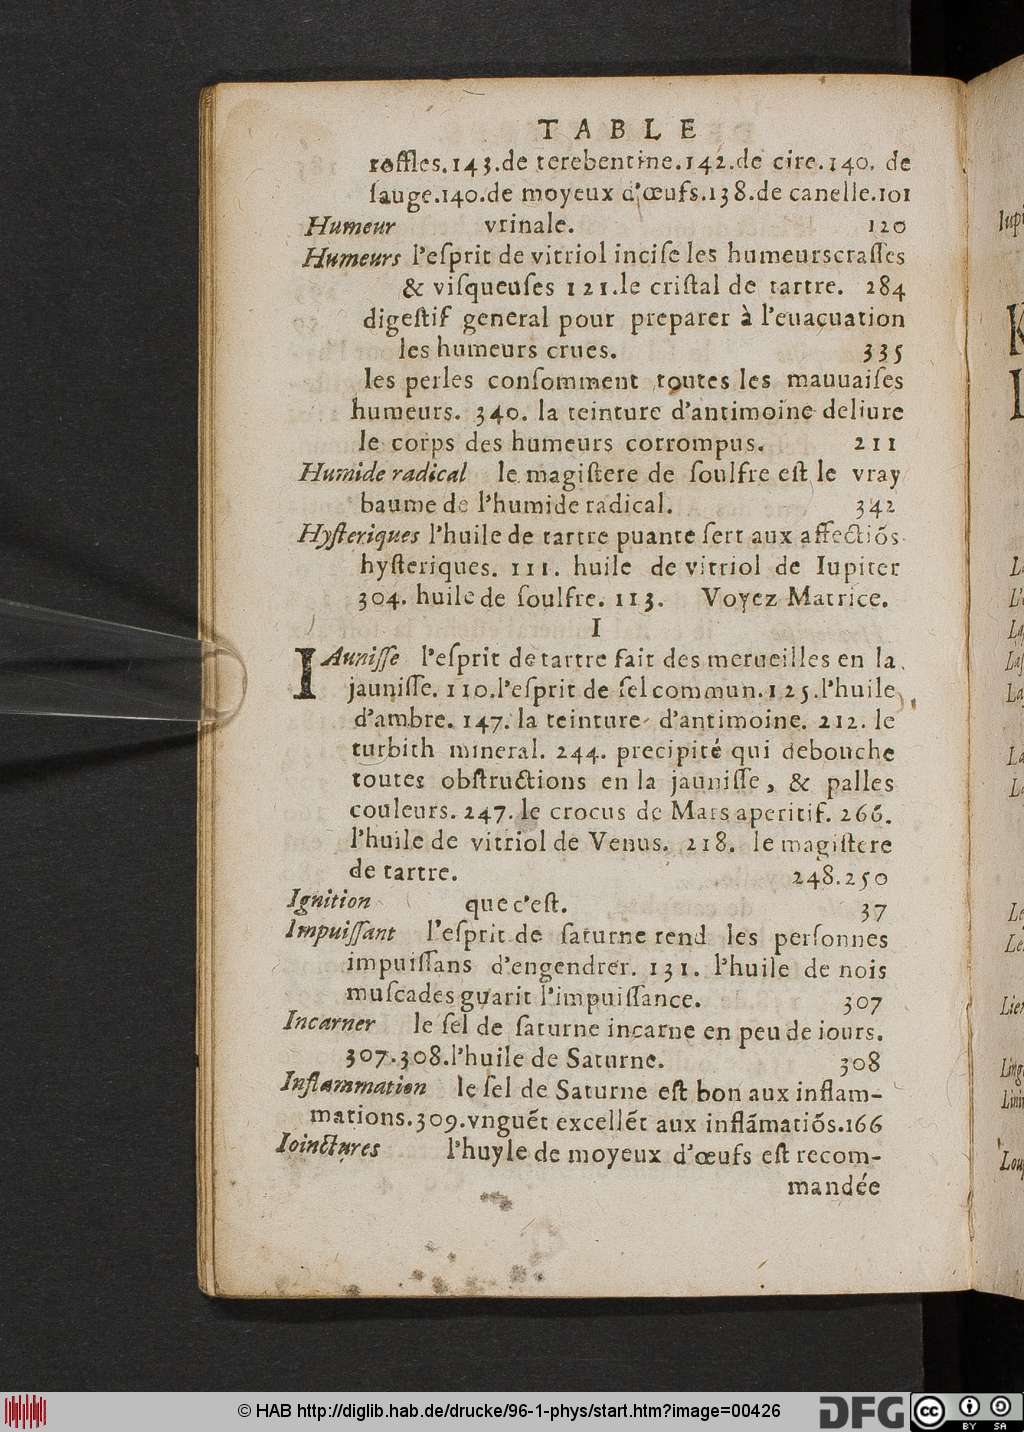 TABLE
roffles.143.de terebentine.142.de cire.140. de
ſauge.140.de moyeux d'œufs.138.de canelle.101
Humeur vrinale. 120
Humeurs l'eſprit de vitriol inciſe les humeurscraſſes
& viſqueuſes 121.le criſtal de tartre. 284
digeſtif general pour preparer à l'euaçuation
les humeurs crues. 335
les perles conſomment toutes les mauuaiſes
humeurs. 340. la teinture d'antimoine deliure
le corps des humeurs corrompus. 211
Humide radical le magiſtere de ſoulfre eſt le vray
baume de l'humide radical. 342
Hyſteriques l'huile de tartre puante ſert aux affectiõs
hyſteriques. 111. huile de vitriol de Iupiter
304. huile de ſoulfre. 113. Voyez Matrice.
I
IAuniſſe l'eſprit de tartre fait des merueilles en la
jauniſſe. 110.l'eſprit de ſel commun.125.l'huile
d'ambre. 147. la teinture d'antimoine. 212. le
turbith mineral. 244. precipité qui debouche
toutes obſtructions en la jauniſſe, & palles
couleurs. 247. le crocus de Mars aperitif. 266.
l'huile de vitriol de Venus. 218. le magiſtere
de tartre. 248.250
Ignition que c'eſt. 37
Impuiſſant l'eſprit de ſaturne rend les perſonnes
impuiſſans d'engendrer. 131. l'huile de nois
muſcades guarit l'impuiſſance. 307
Incarner le ſel de ſaturne incarne en peu de iours.
307.308.l'huile de Saturne. 308
Inflammation le ſel de Saturne eſt bon aux inflam-
mations.309.vnguẽt excellẽt aux inflãmatiõs.166
Ioinctures l'huyle de moyeux d'œufs eſt recom-
mandée
© HAB http://diglib.hab.de/drucke/96-1-phys/start.htm?image=00426
DFG
cc BY SA